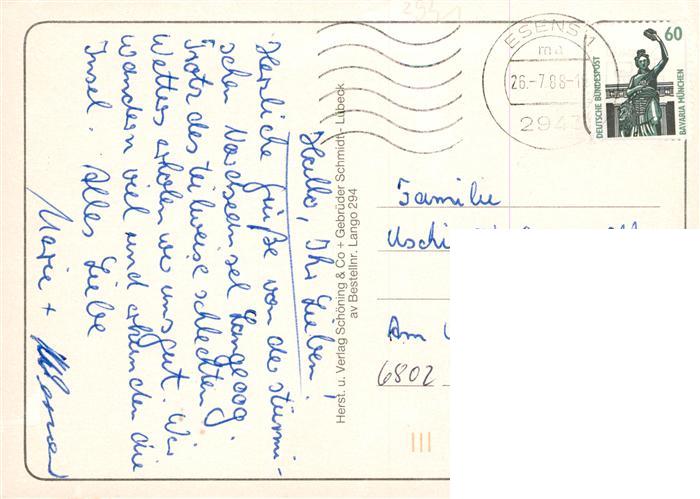 Hallo, Ihr Lieben!
Herzliche Grüße von der stürmi-
schen Nordseeinsel Langeoog.
Trotz des teilweise schlechten
Wetters erholen wir uns gut. Wir
wandern viel und erkunden die
Insel. Alles Liebe
Marie +
Herst. u. Verlag Schöning & Co + Gebrüder Schmidt - Lübeck
av Bestellnr. Lango 294
ESENS 1
ma
26.-7.88-1
294
60
DEUTSCHE BUNDESPOST
BAVARIA MÜNCHEN
Familie
Uschi
Am
6802